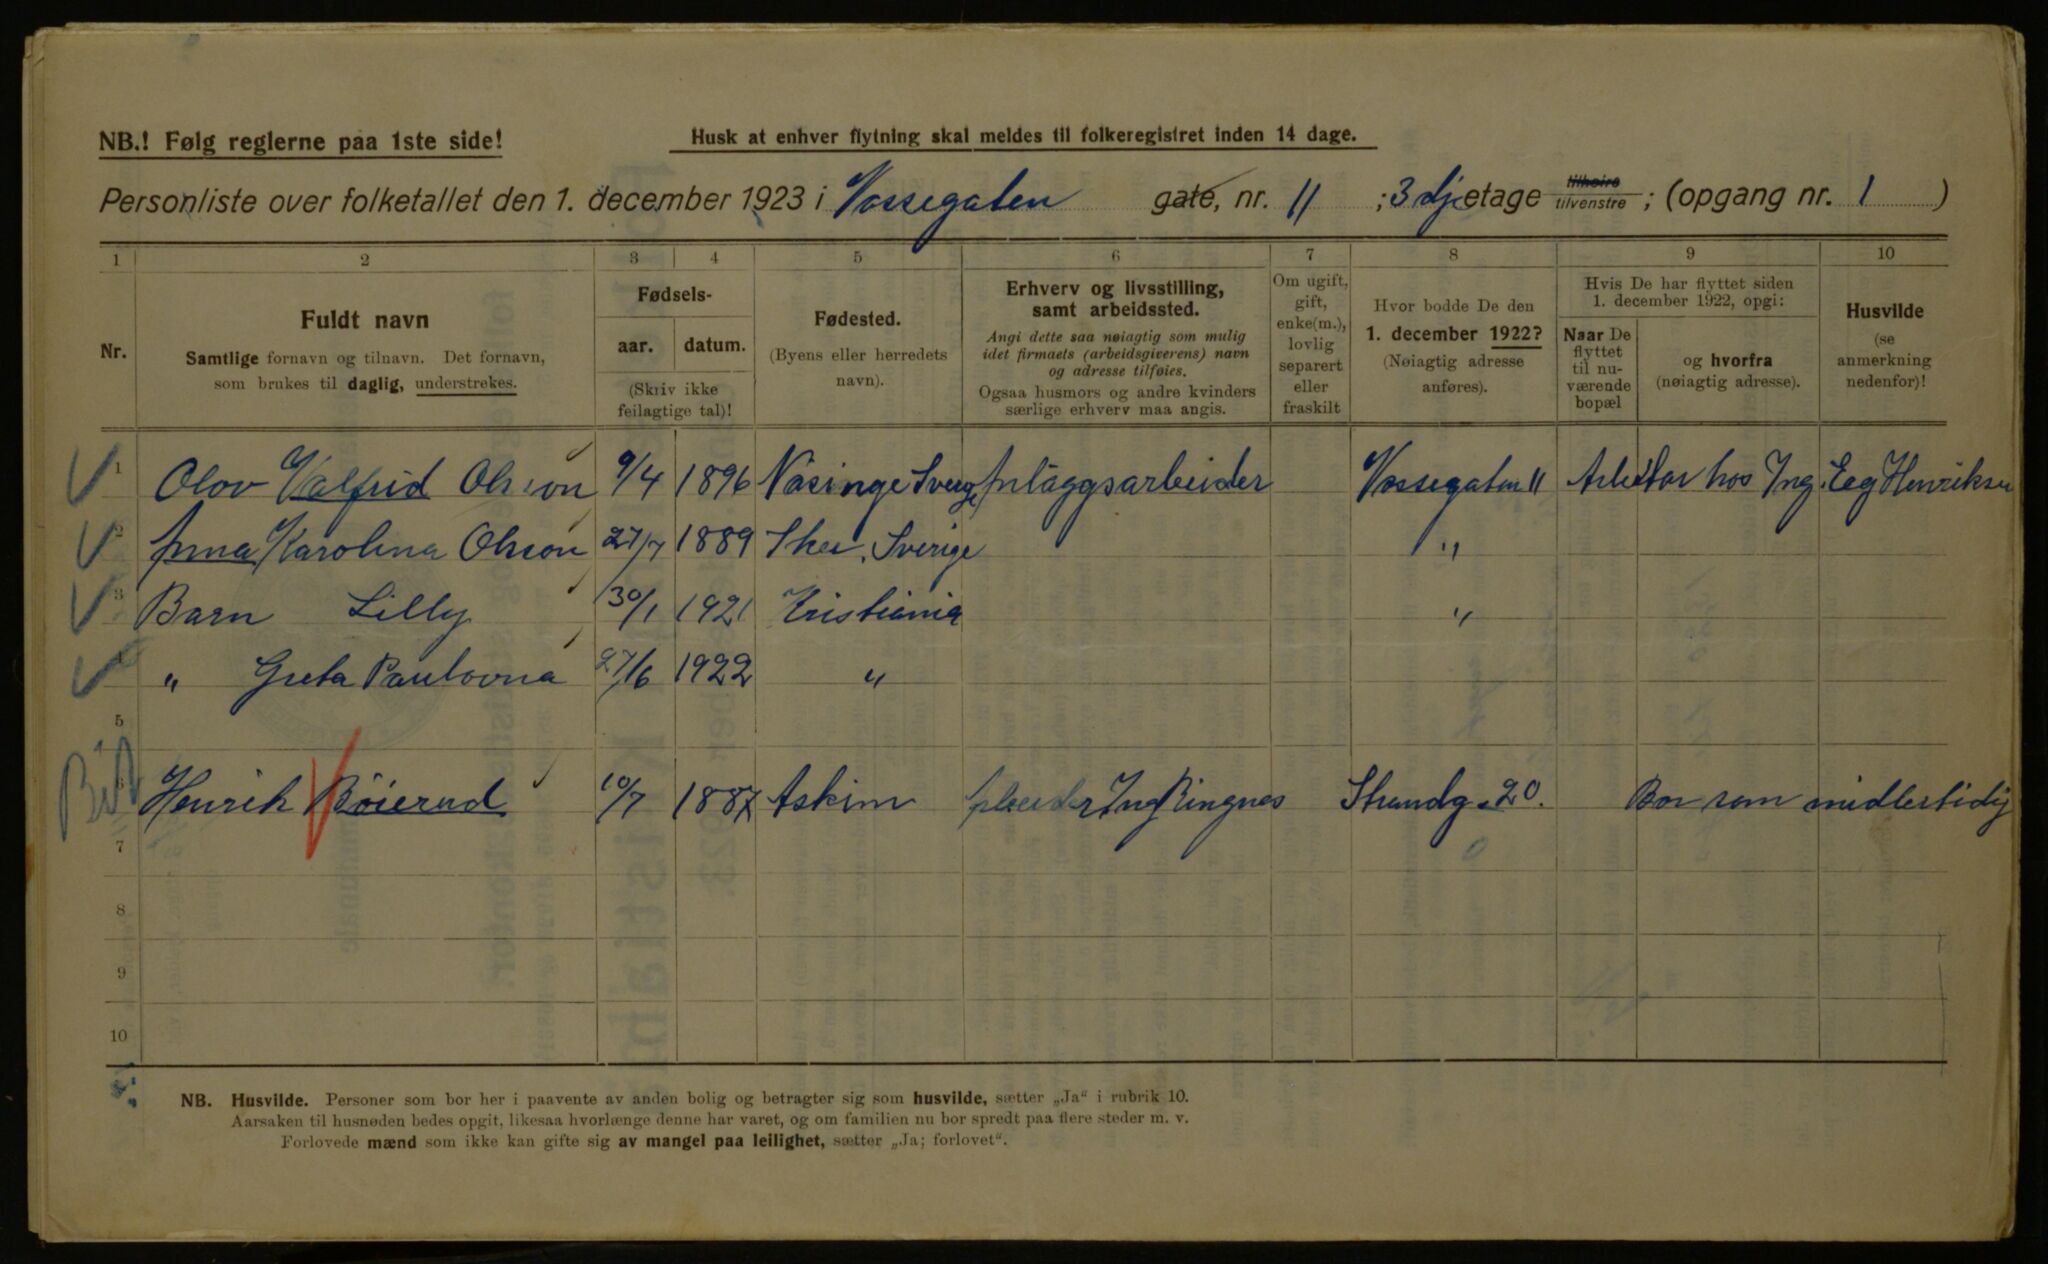 NB.! Følg reglerne paa 1ste side!
Husk at enhver flytning skal meldes til folkeregistret inden 14 dage.
Personliste over folketallet den 1. december 1923 i Vossegaten gate, nr. 11 ; 3dje etage tilhøire tilvenstre ; (opgang nr. 1 )
1 2 3 4 5 6 7 8 9 10
Nr.
Fuldt navn
Samtlige fornavn og tilnavn. Det fornavn,
som brukes til daglig, understrekes.
Fødsels-
aar. datum.
(Skriv ikke
feilagtige tal)!
Fødested.
(Byens eller herredets
navn).
Erhverv og livsstilling,
samt arbeidssted.
Angi dette saa nøiagtig som mulig
idet firmaets (arbeidsgiverens) navn
og adresse tilføies.
Ogsaa husmors og andre kvinders
særlige erhverv maa angis.
Om ugift,
gift,
enke(m.),
lovlig
separert
eller
fraskilt
Hvor bodde De den
1. december 1922?
(Nøiagtig adresse
anføres).
Hvis De har flyttet siden
1. december 1922, opgi:
Naar De
flyttet
til nu-
værende
bopæl
og hvorfra
(nøiagtig adresse).
Husvilde
(se
anmerkning
nedenfor)!
1 Olov Valfrid Olsson 9/4 1896 Näsinge Sverge Anläggsarbeider Vossegaten 11 Arbeidar hos Ing. Eeg Henriksen
2 Anna Karolina Olsson 27/7 1889 Skee, Sverige "
3 Barn Lilly 30/1 1921 Kristiania "
4 " Greta Paulovna 27/6 1922 "
5
6 Henrik Böierud 10/7 1887 Askim Arbeider Ing Ringnes Strandg. 20. Bor som midlertidig
7
8
9
10
NB. Husvilde. Personer som bor her i paavente av anden bolig og betragter sig som husvilde, sætter „Ja“ i rubrik 10.
Aarsaken til husnøden bedes opgit, likesaa hvorlænge denne har varet, og om familien nu bor spredt paa flere steder m. v.
Forlovede mænd som ikke kan gifte sig av mangel paa leilighet, sætter „Ja; forlovet“.